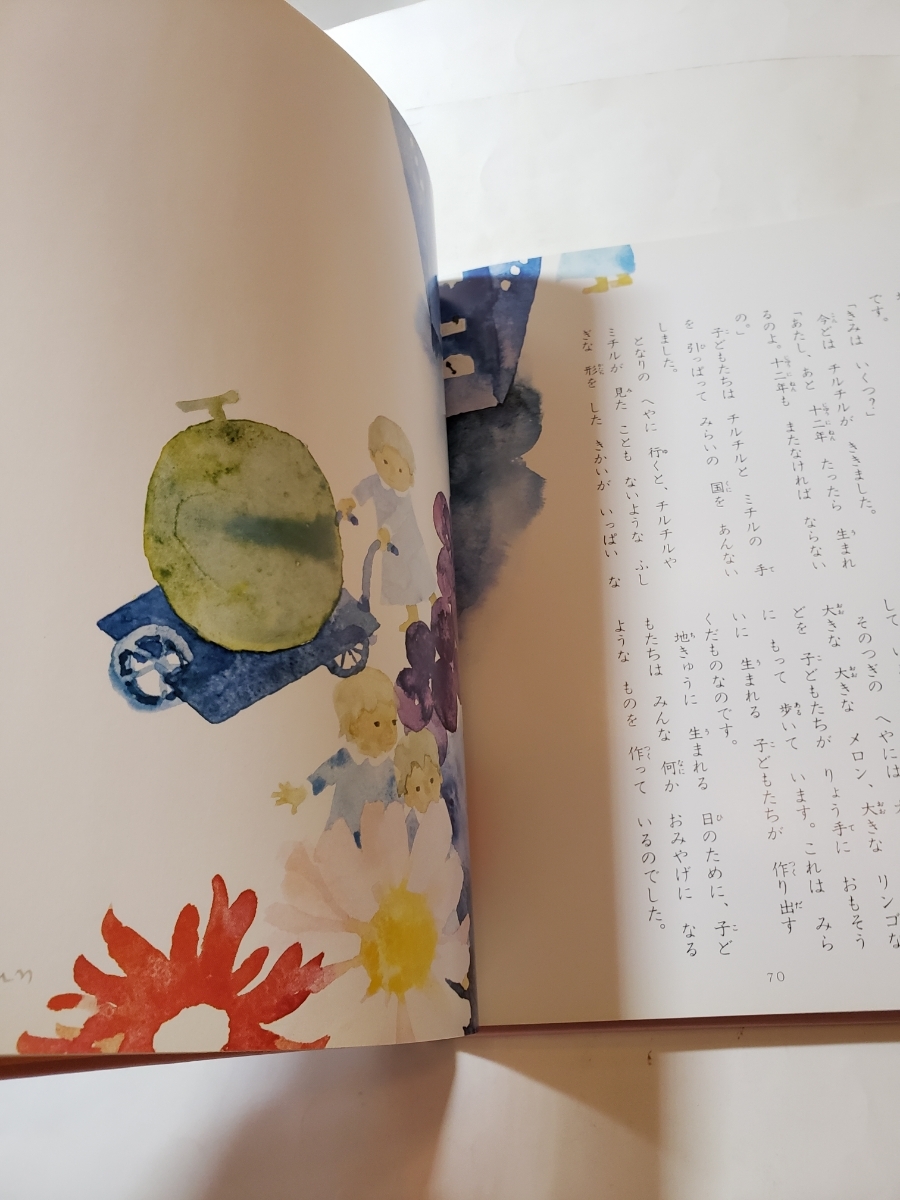 です。
「きみは いくつ？」
今どは チルチルが ききました。
「あたし、あと 十二年 たったら 生まれ
るのよ。十二年も またなければ ならない
の。」
子どもたちは チルチルと ミチルの 手
を 引っぱって みらいの 国を あんない
しました。
となりの へやに 行くと、チルチルや
ミチルが 見た ことも ないような ふし
ぎな 形を した きかいが いっぱい な
して
そのつぎの へやには
大きな 大きな メロン、大きな リンゴな
どを 子どもたちが りょう手に おもそう
に もって 歩いて います。これは みら
いに 生まれる 子どもたちが 作り出す
くだものなのです。
地きゅうに 生まれる 日のために、子ど
もたちは みんな 何か おみやげに なる
ような ものを 作って いるのでした。
70